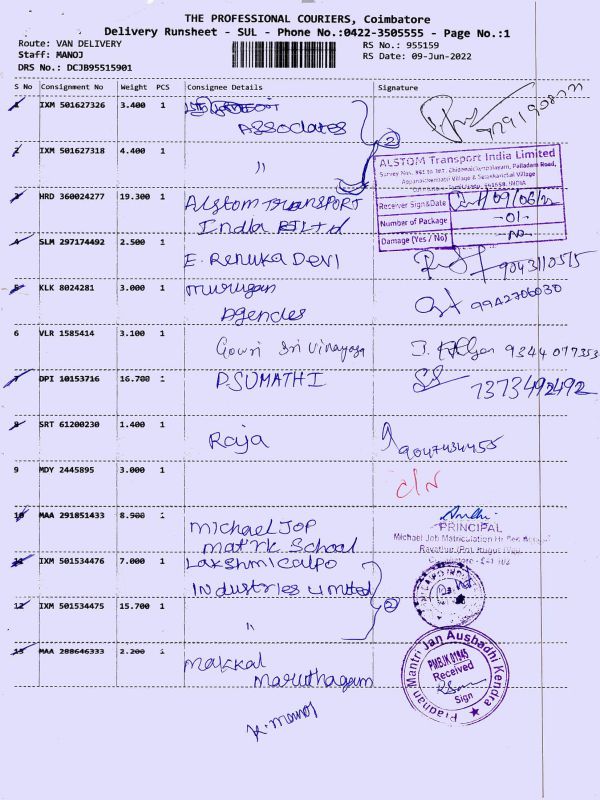 THE PROFESSIONAL COURIERS, Coimbatore
Delivery Runsheet - SUL - Phone No.:0422-3505555 - Page No.:1
Route: VAN DELIVERY
RS No.: 955159
Staff: MANOJ
RS Date: 09-Jun-2022
DRS No.: DCJB95515901
S No Consignment No Weight PCS Consignee Details Signature
1 IXM 501627326 3.400 1
Associates
2 IXM 501627318 4.400 1 "
2
ALSTOM Transport India Limited
3 HRD 360024277 19.300 1 Alstom TRANSPORT
India P Ltd
Receiver Sign&Date 09/06/22
Number of Package -01-
Damage (Yes / No) -No-
4 SLM 297174492 2.500 1 E. Renuka Devi 9043110515
5 KLK 8024281 3.000 1 murugan
Agencies
9942706030
6 VLR 1585414 3.100 1
Gowri Sri Vinayaga 9344 077353
7 DPI 10153716 16.700 1 P SUMATHI 7373492492
8 SRT 61200230 1.400 1
Raja 9047434455
9 MDY 2445895 3.000 1
C/N
10 MAA 291851433 8.900 1
michael JOP
matrk School
PRINCIPAL
Michael Job Matriculation Hr Sec School
11 IXM 501534476 7.000 1 Lakshmicalpo
Industries Limited
12 IXM 501534475 15.700 1 "
2
13 MAA 288646333 2.200 1
makkal
maruthagam
Pradhan Mantri Jan Aushadhi Kendra
PMBJK 01945
Received
Sign
K. Manoj